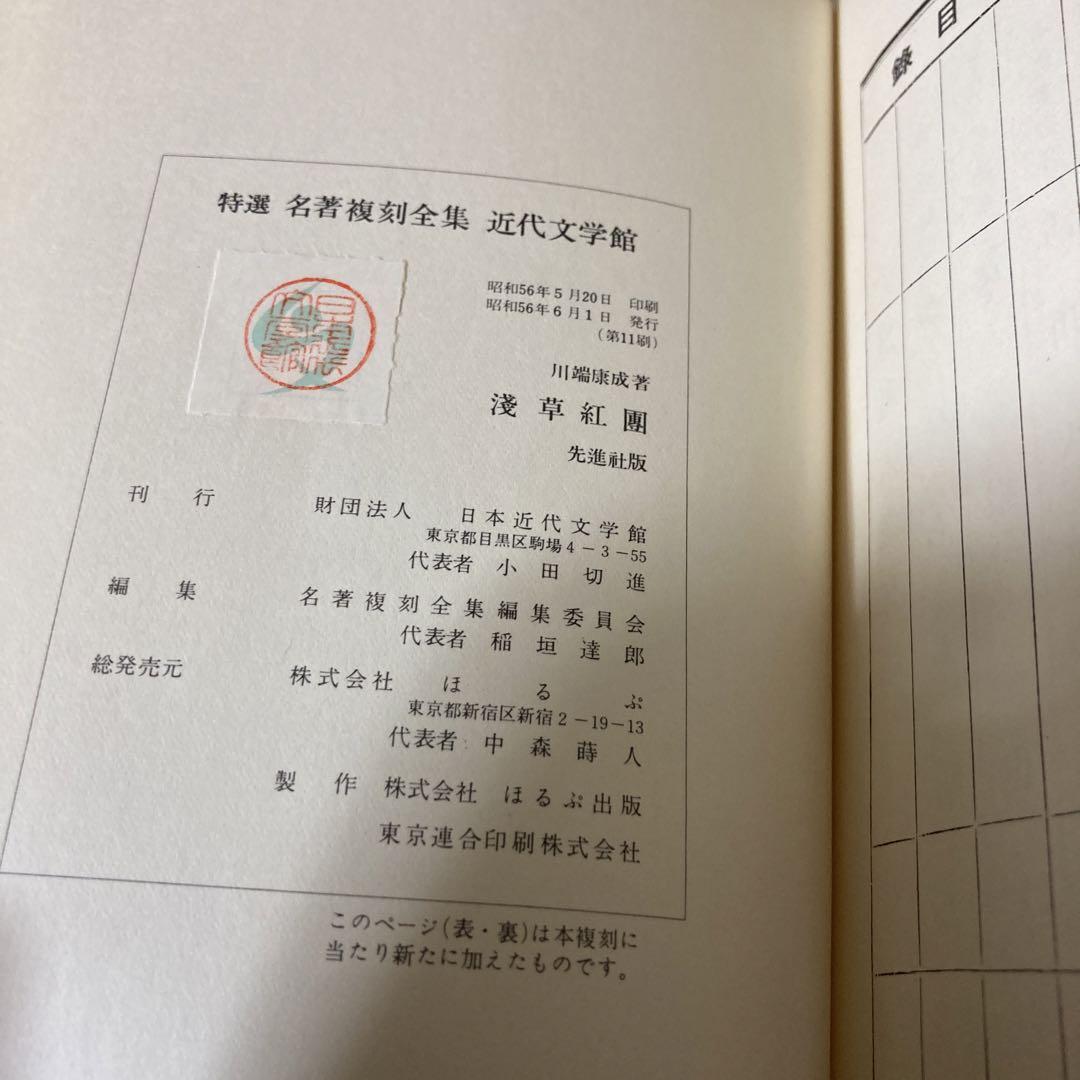 特選 名著複刻全集 近代文学館
昭和56年5月20日 印刷
昭和56年6月1日 発行
(第11刷)
川端康成著
淺草紅團
先進社版
刊行 財団法人 日本近代文学館
東京都目黒区駒場4-3-55
代表者 小田切進
編集 名著複刻全集編集委員会
代表者 稲垣達郎
総発売元 株式会社 ほるぷ
東京都新宿区新宿2-19-13
代表者 中森蒔人
製作 株式会社 ほるぷ出版
東京連合印刷株式会社
このページ(表・裏)は本複刻に
当たり新たに加えたものです。
目錄